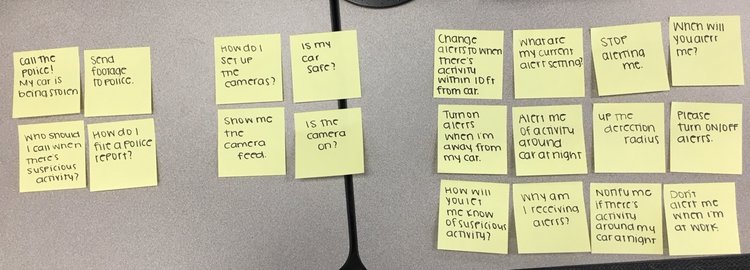 Call the
police!
My car is
being stolen
Send
footage
to police.
Who should
I call when
there's
suspicious
activity?
How do I
file a police
report?
How do I
set up
the
cameras?
Is my
car
safe?
Show me
the
camera
feed.
Is the
camera
on?
Change
alerts to when
there's
activity
within 10ft
from car.
What are
my current
alert setting?
STOP
alerting
me.
When will
you alert
me?
Turn on
alerts
when i'm
away from
my car.
Alert me
of activity
around
car at night
up the
detection
radius
Please
turn on/off
alerts.
How will
you let
me know
of suspicious
activity?
Why am
I receiving
alerts?
Notify me
if there's
activity
around my
car at night
Don't
alert me
when i'm
at work.